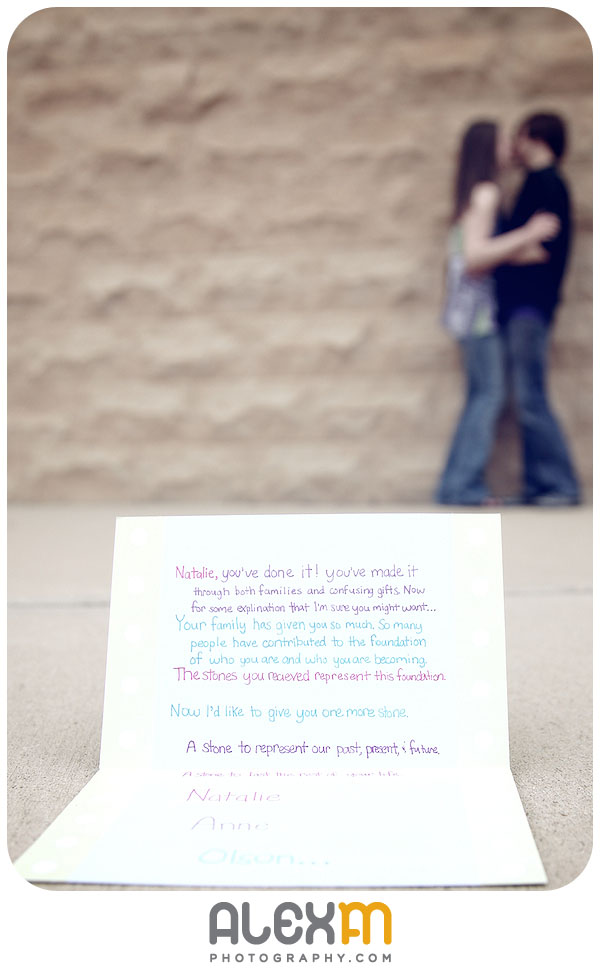 Natalie, you've done it! you've made it
through both families and confusing gifts. Now
for some explination that I'm sure you might want...
Your family has given you so much. So many
people have contributed to the foundation
of who you are and who you are becoming.
The stones you recieved represent this foundation.
Now I'd like to give you one more stone.
A stone to represent our past, present, & future.
A stone to last the rest of your life
Natalie
Anne
Olson...
ALEXM
PHOTOGRAPHY.COM